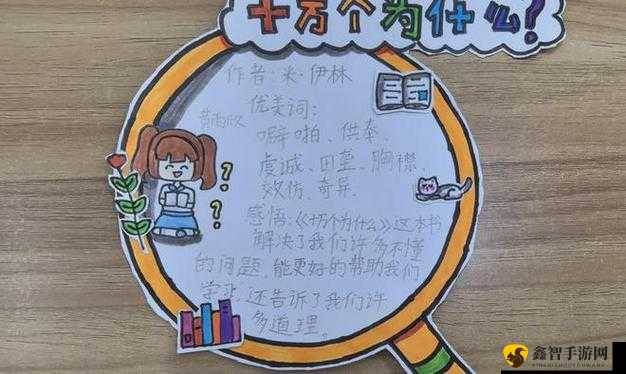 十万个为什么?
作者:米·伊林
优美词:
噼啪、供奉、
虔诚、田埂、胸襟、
效仿、奇异、
感悟:《十万个为什么》这本书
解决了我们许多不懂
的问题,能更好的帮助我们
学习,还告诉了我们许
多道理。
? ?
鑫智手游网